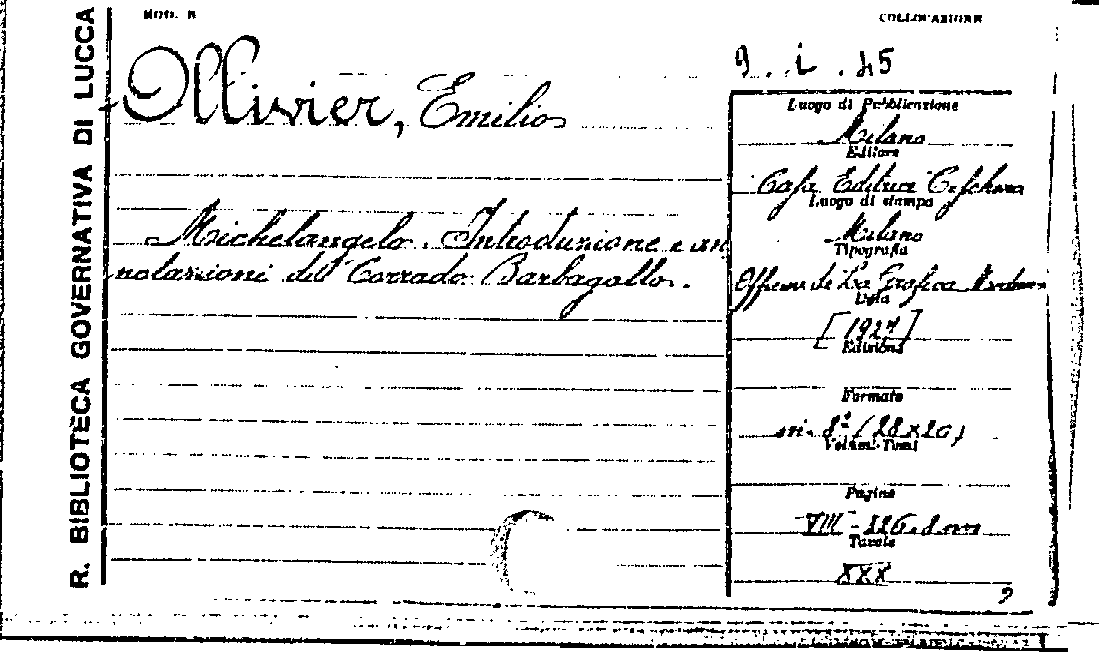 MOD. B
COLLOCAZIONE
R. BIBLIOTECA GOVERNATIVA DI LUCCA
9. L. 45
Ollivier, Emilio
Michelangelo. Introduzione e an
notazioni di Corrado Barbagallo.
Luogo di Pubblicazione
Milano
Editore
Casa Editrice Ceschina
Luogo di stampa
Milano
Tipografia
Officine de La Grafica Moderna
Data
[1927]
Edizione
Formato
in-8° (28x20)
Volumi-Tomi
Pagine
VIII-226.
Tavole
XXX